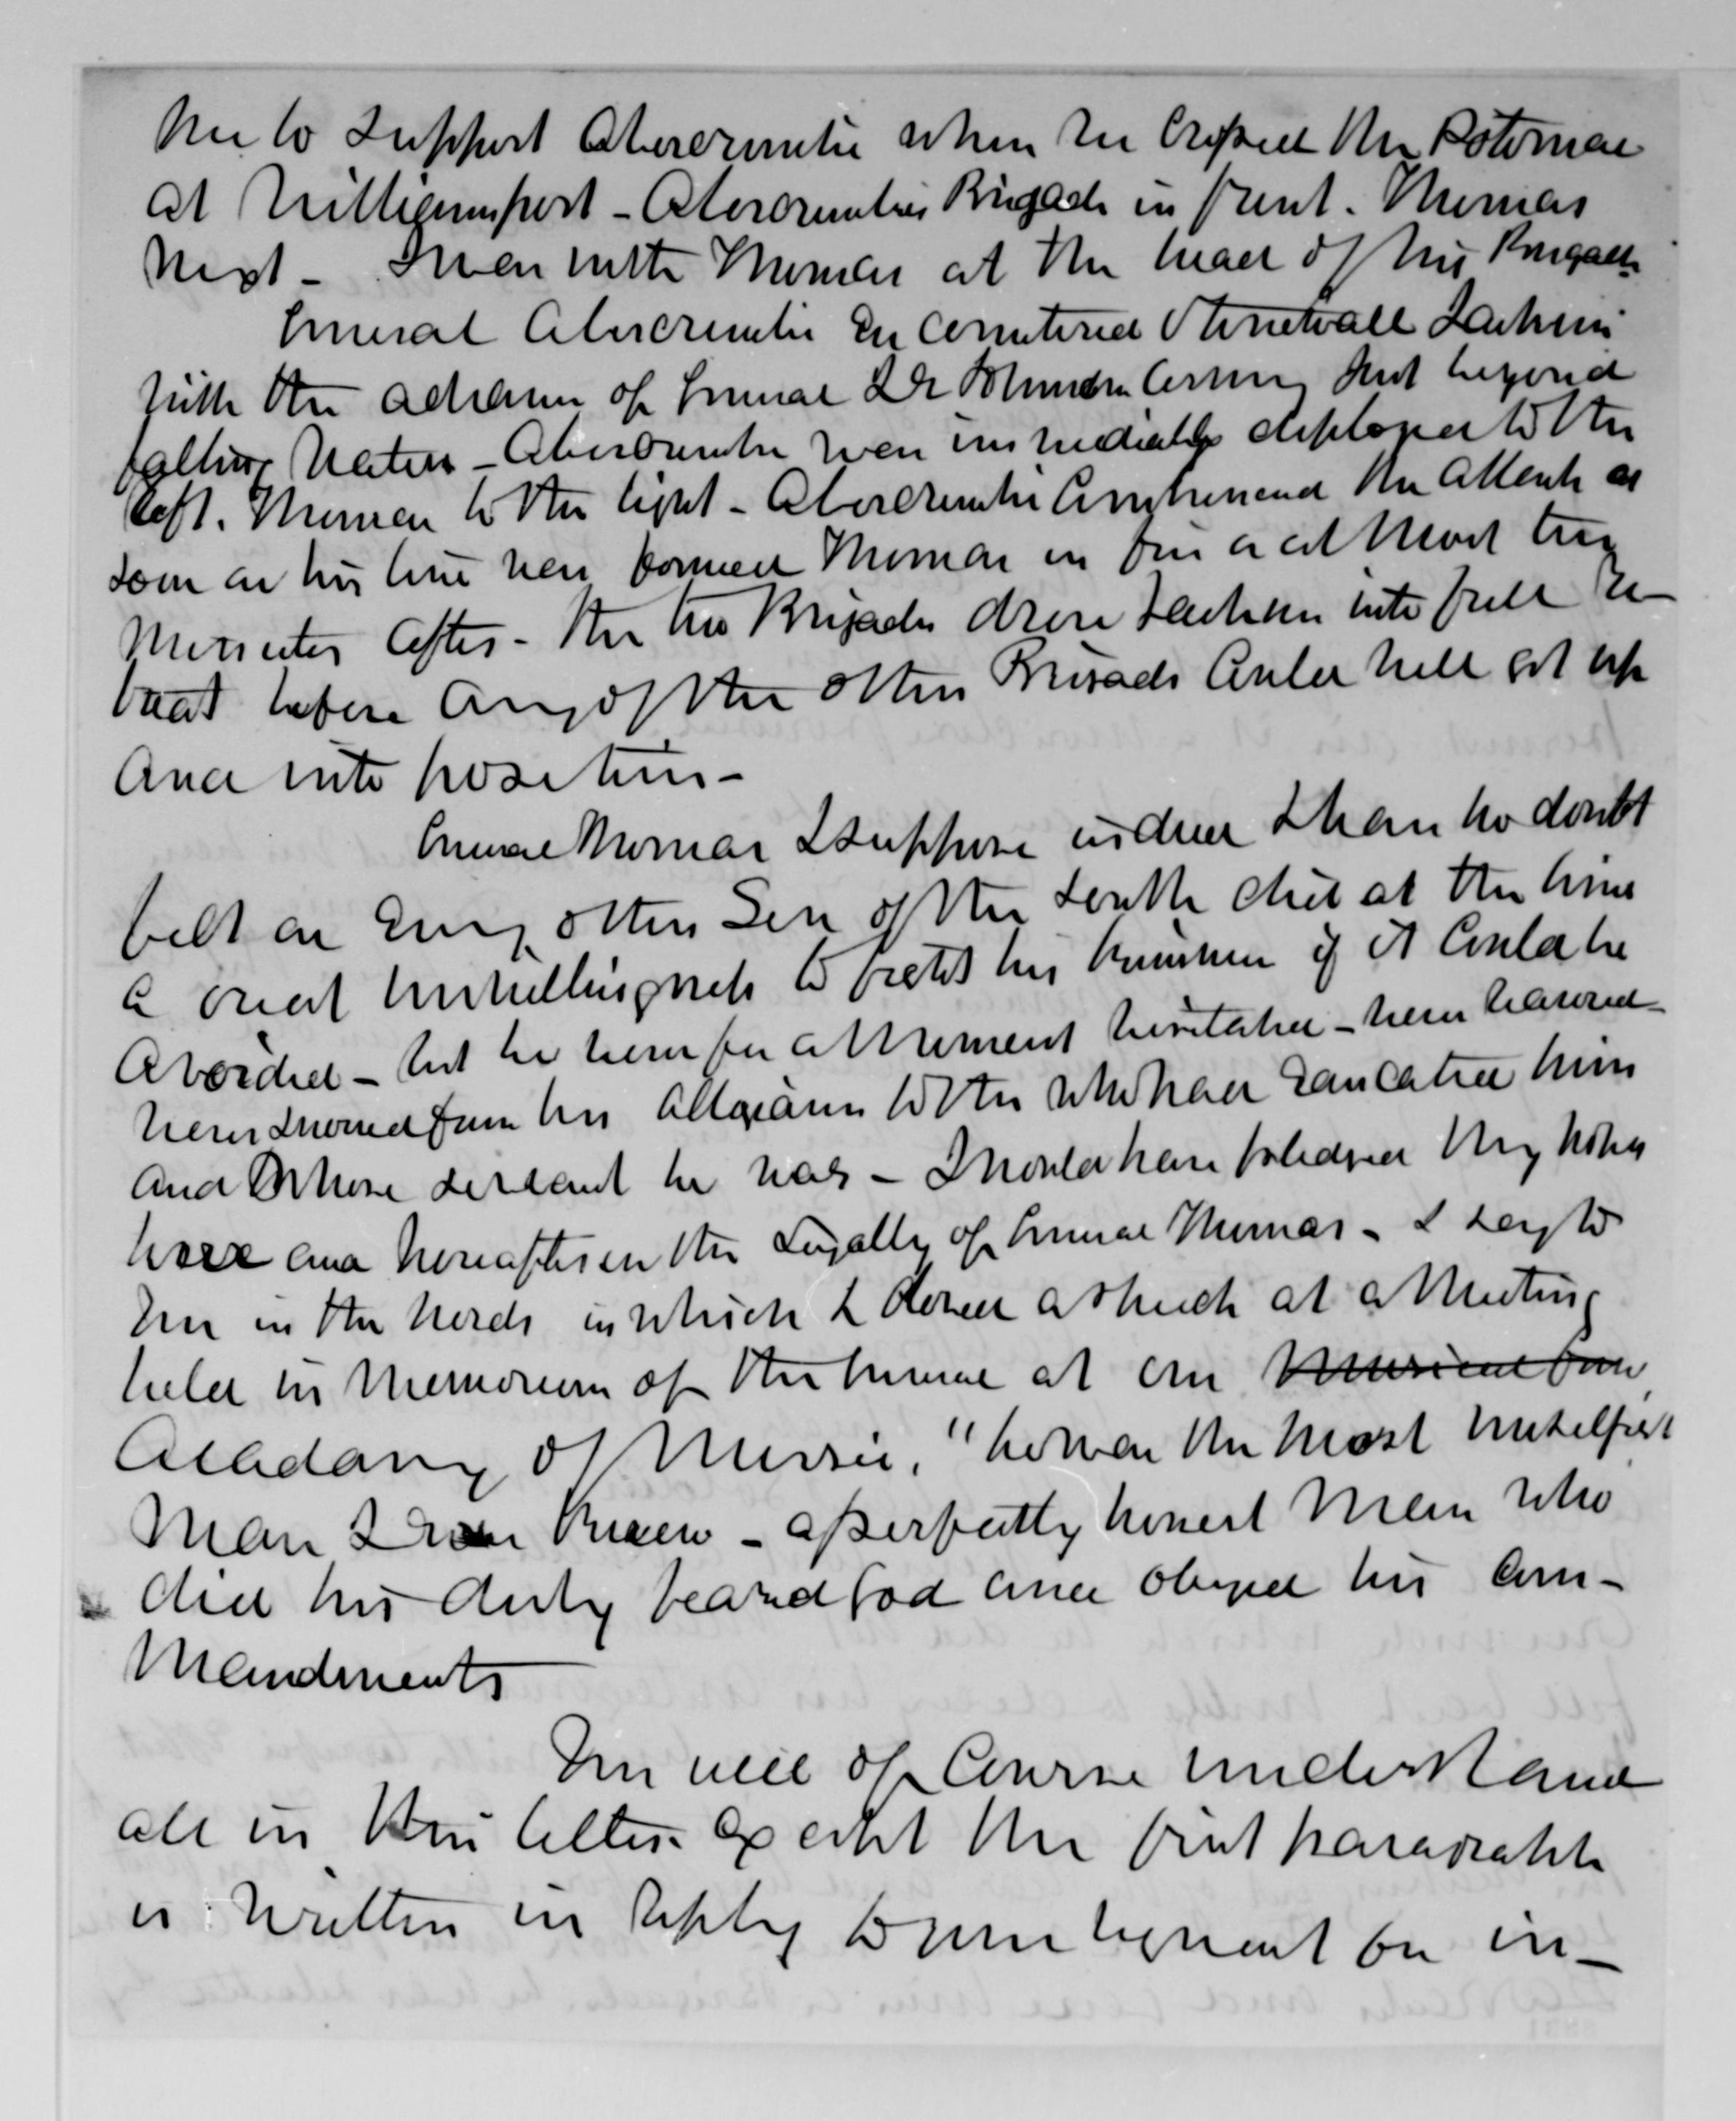 him to support Abercrombie when he crossed the Potomac
at Williamsport - Abercrombies Brigade in front. Thomas
next - I was with Thomas at the head of his Brigade
General Abercrombie encountered Stonewall Jackson
with the advance of General Jos Johnsons Army just beyond
falling Waters - Abercrombie was immediately deployed to the
left. Thomas to the right - Abercrombie Commenced the attack as
soon as his line was formed Thomas in five or at most ten
minutes after - the two Brigades drove Jackson into full re-
treat before any of the other Brigades Could well get up
and into position -
General Thomas I suppose indeed I have no doubt
felt as every other Son of the South did at the time
a great unwillingness to fight his kinsmen if it Could be
avoided - but he never for a moment hesitated - never wavered -
never swerved from his allegiance to the who had educated him
and whose servant he was - I would have pledged my hopes
here and hereafter on the Loyalty of General Thomas - I say to
you in the words in which I closed a speech at a meeting
held in memoriam of the General at our
Academy of Music, "he was the most unselfish
man I ever knew - a perfectly honest man who
did his duty feared God and obeyed his Com-
mandments
You will of Course understand
all in this letter except the first paragraph
is written in reply to your request for in-